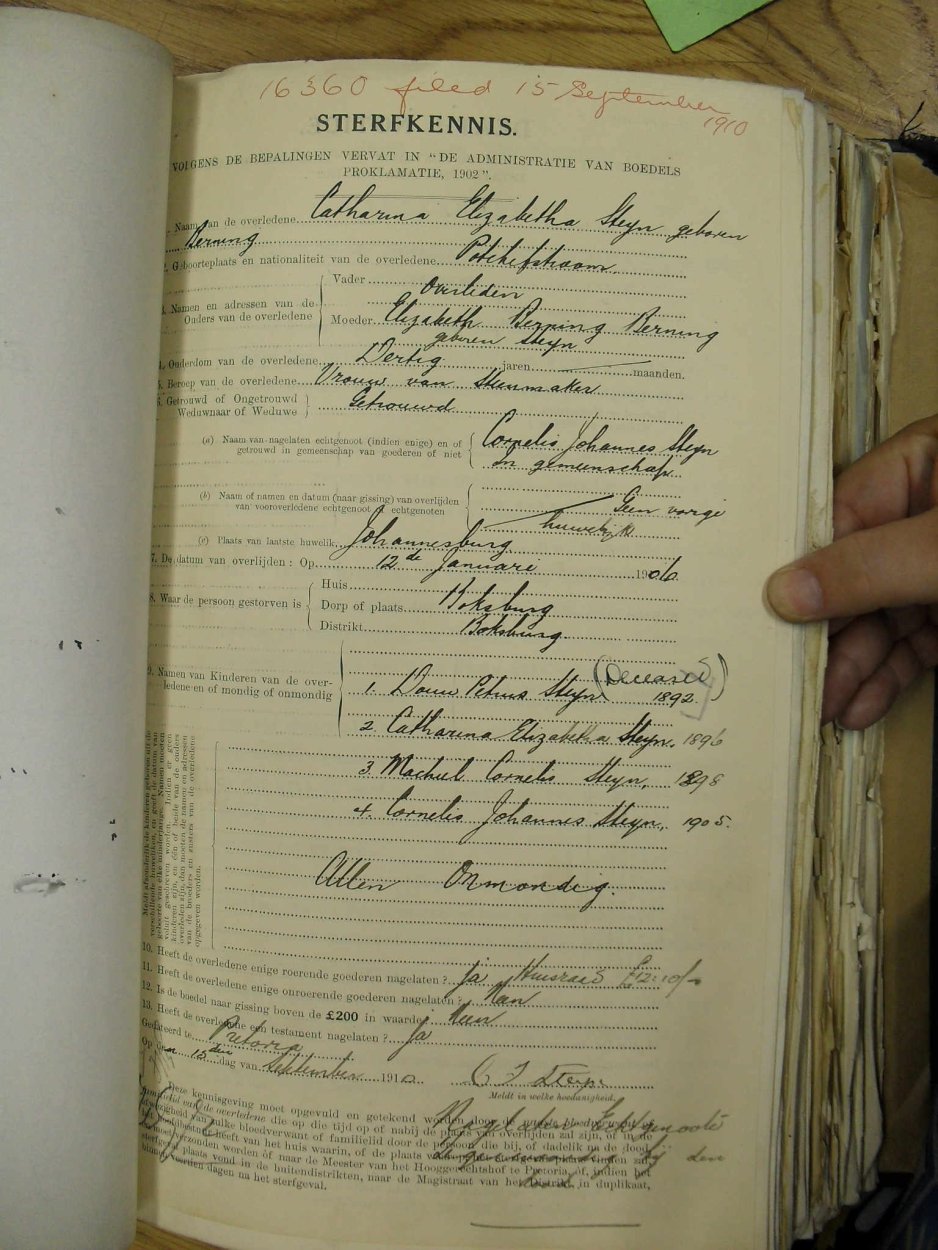 16360 filed 15 September
1910
STERFKENNIS.
VOLGENS DE BEPALINGEN VERVAT IN "DE ADMINISTRATIE VAN BOEDELS
PROKLAMATIE, 1902".
Naam van de overledene Catharina Elizabetha Steyn geboren
Berning
2. Geboorteplaats en nationaliteit van de overledene Potchefstroom
3. Namen en adressen van de Ouders van de overledene
Vader Overleden
Moeder Elizabeth Berning Berning
geboren Steyn
4. Ouderdom van de overledene Dertig jaren maanden.
5. Beroep van de overledene Vrouw van Steenmaker
6. Getrouwd of Ongetrouwd
Weduwnaar of Weduwe Getrouwd
(a) Naam van nagelaten echtgenoot (indien enige) en of Cornelis Johannes Steyn
getrouwd in gemeenschap van goederen of niet In gemeenschap
(b) Naam of namen en datum (naar gissing) van overlijden Geen vorige
van vooroverledene echtgenoot of echtgenoten huwelijk
(c) Plaats van laatste huwelik Johannesburg
7. De datum van overlijden: Op 12de Januarie 1906
8. Waar de persoon gestorven is
Huis
Dorp of plaats Boksburg
Distrikt Boksburg
9. Namen van Kinderen van de over-
ledene en of mondig of onmondig
(Deceased)
1. Douw Petrus Steyn 1892
2. Catharina Elizabetha Steyn, 1896
3 Machiel Cornelis Steyn, 1898
4. Cornelis Johannes Steyn, 1905.
Allen Onmondig.
10. Heeft de overledene enige roerende goederen nagelaten? Ja Huisraad £12:10/-
11. Heeft de overledene enige onroerende goederen nagelaten?
12. Is de boedel naar gissing boven de £200 in waarde? Neen
13. Heeft de overledene een testament nagelaten? Ja
Gedateerd te Pretoria
Op den 15den dag van September 1910 C J Steyn
Meldt in welke hoedanigheid.
Deze kennisgeving moet opgevuld en getekend worden door de
van de overledene die op die tijd op of nabij de plaats van overlijden zal zijn, of in de
afwezigheid van zulke bloedverwant of familielid door de persoon die bij, of dadelik na de dood
heeft van het huis waarin, of de plaats
verzonden worden óf naar de Meester van het Hooggerechtshof te Pretoria, óf, indien het
sterfgeval plaats vond in de buitendistrikten, naar de Magistraat van het Distrikt, in duplikaat,
binnen veertien dagen na het sterfgeval.